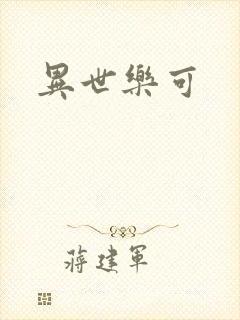 異世樂可
蔣建軍